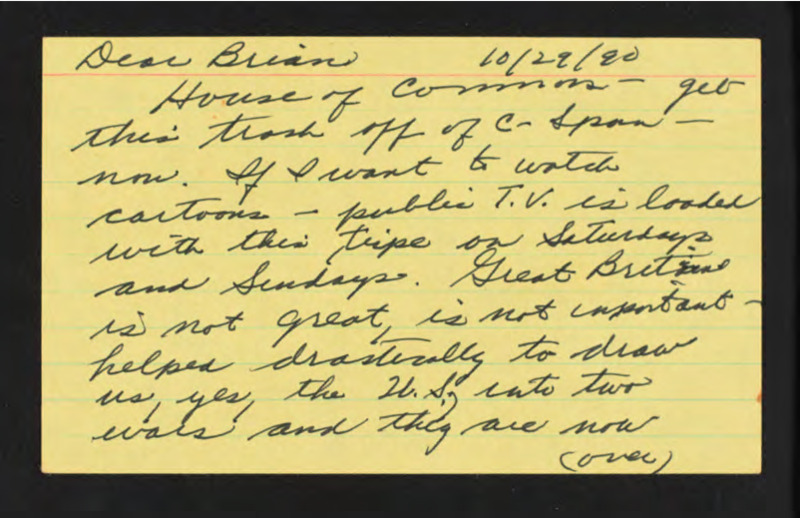 Dear Brian 10/29/90
House of Commons - get
this trash off of C-Span -
now. If I want to watch
cartoons - public T.V. is loaded
with this tripe on Saturdays
and Sundays. Great Britain
is not great, is not important -
helped drastically to draw
us, yes, the U.S., into two
wars and they are now
(over)